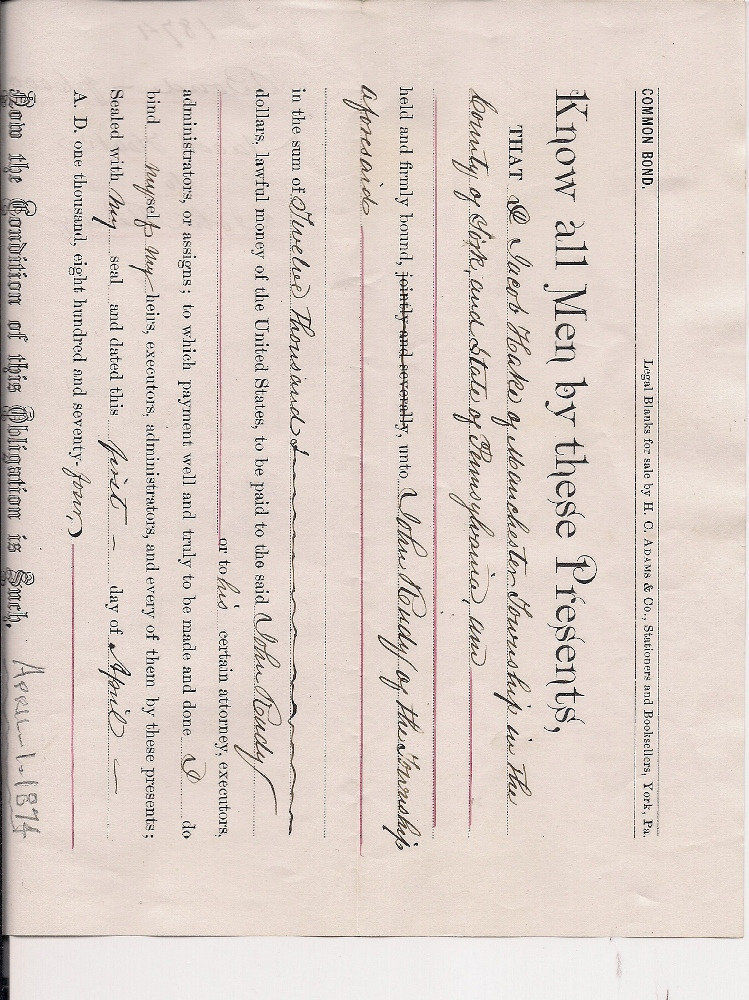 COMMON BOND. Legal Blanks for sale by H. C. ADAMS & Co., Stationers and Booksellers, York, Pa.
Know all Men by these Presents,
THAT I Jacob Hake of Manchester Township in the
County of York, and State of Pennsylvania, am
held and firmly bound, jointly and severally, unto John Rudy of the Township
aforesaid
in the sum of Twelve Thousand
dollars, lawful money of the United States, to be paid to the said John Rudy
or to his certain attorney, executors,
administrators, or assigns; to which payment well and truly to be made and done I do
bind myself my heirs, executors, administrators, and every of them by these presents;
Sealed with my seal and dated this first day of April
A. D. one thousand, eight hundred and seventy-four,
Now the Condition of this Obligation is Such, April 1-1874